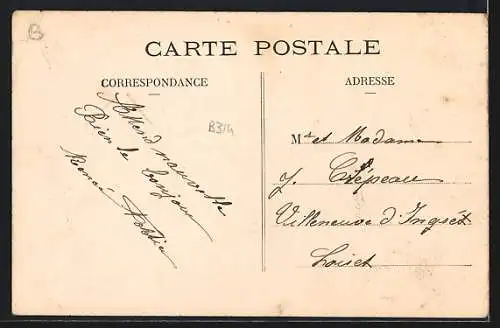 B
CARTE POSTALE
CORRESPONDANCE
ADRESSE
B314
Attend nouvelle
Bien le bonjour
René
Mr et Madame
J. Crépeau
Villeneuve d'Ingré
Loiret